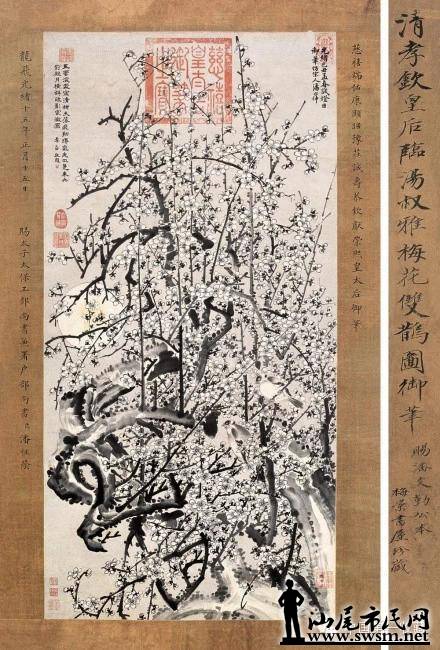 清孝欽皇后臨湯叔雅梅花雙鵲圖御筆
賜潘文勤公本
梅景書屋珍藏
慈禧端佑康頤昭豫莊誠壽恭欽獻崇熙皇太后御筆
光緒己丑孟春試燈日
御筆仿宋人湯正仲
慈禧皇太后之寶
龍飛光緒十五年正月十五日
賜太子太保工部尚書兼署戶部尚書臣潘祖蔭
汕尾市民网
www.swsm.net